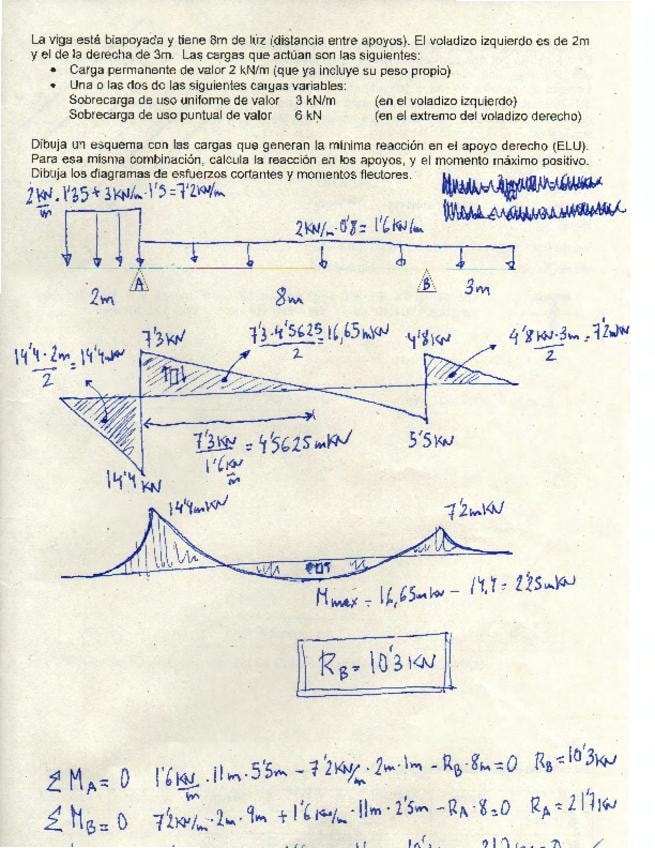 La viga está biapoyada y tiene 8m de luz (distancia entre apoyos). El voladizo izquierdo es de 2m
y el de la derecha de 3m. Las cargas que actúan son las siguientes:
• Carga permanente de valor 2 kN/m (que ya incluye su peso propio)
• Una o las dos de las siguientes cargas variables:
Sobrecarga de uso uniforme de valor 3 kN/m (en el voladizo izquierdo)
Sobrecarga de uso puntual de valor 6 kN (en el extremo del voladizo derecho)
Dibuja un esquema con las cargas que generan la mínima reacción en el apoyo derecho (ELU).
Para esa misma combinación, calcula la reacción en los apoyos, y el momento máximo positivo.
Dibuja los diagramas de esfuerzos cortantes y momentos flectores.
2 KN/m · 1'35 + 3 KN/m · 1'5 = 7'2 KN/m
2 KN/m · 0'8 = 1'6 KN/m
A B
2m 8m 3m
7'3 KN 7'3 · 4'5625 / 2 = 16,65 mKN 4'8 KN 4'8 KN · 3m / 2 = 7'2 mKN
14'4 · 2m / 2 = 14'4 mKN
7'3 KN / 1'6 KN/m = 4'5625 mKN 5'5 KN
14'4 KN
14'4 mKN 7'2 mKN
Mmáx = 16,65 mKN - 14,4 = 2'25 mKN
RB = 10'3 KN
ΣMA = 0 1'6 KN/m · 11m · 5'5m - 7'2 KN/m · 2m · 1m - RB · 8m = 0 RB = 10'3 KN
ΣMB = 0 7'2 KN/m · 2m · 9m + 1'6 KN/m · 11m · 2'5m - RA · 8 = 0 RA = 21'7 KN